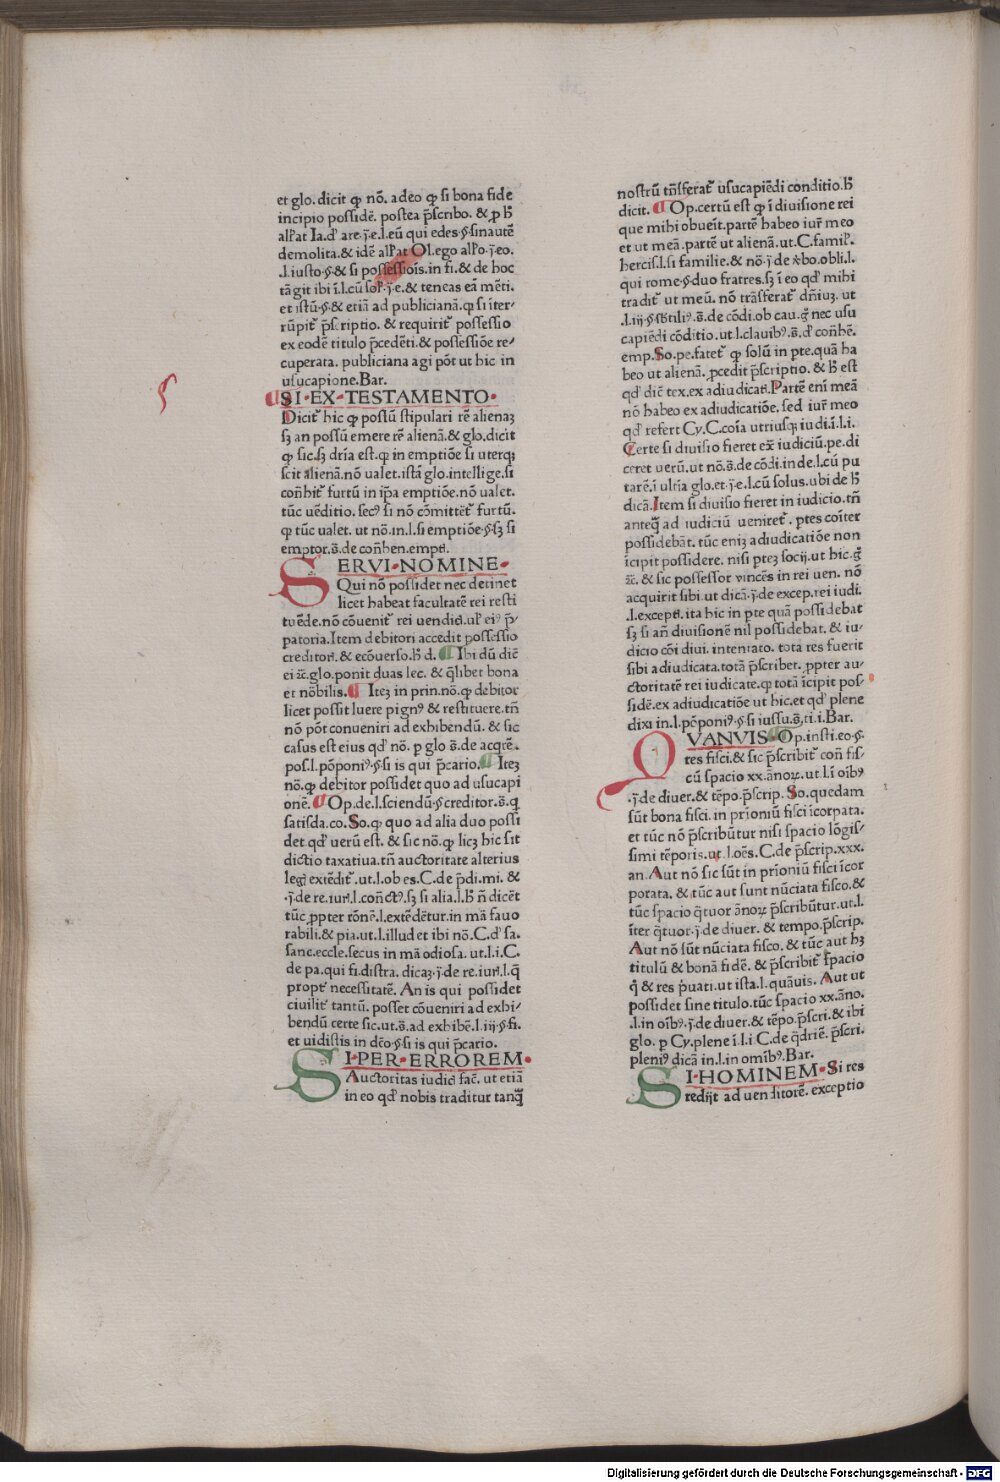 et glo. dicit ꝙ nō. adeo ꝙ si bona fide
incipio possidē. postea p̄scribo. & ꝓ h̄
allat Ia. d̓ are.ȷ̄.e.l.eū qui edes.§.sinautē
demolita. & idē allat Ol. ego allo.ȷ̄.eo.
.l.iusto.§.& si possessiōis. in fi. & de hoc
tāgit ibi ī.l.cū sol̓.ȷ̄.e.& teneas eā mēti.
et istū.§.& etiā ad publicianā.ꝙ si īter-
rūpit̓ p̄scriptio. & requirit̓ possessio
ex eodē titulo p̄cedēti.& possessiōe re-
cuperata. publiciana agi pōt ut hic in
usucapione.Bar.
SI·EX·TESTAMENTO·
Dicit̓ hic ꝙ possū stipulari rē alienaꝫ
sꝫ an possū emere rē alienā.& glo.dicit
ꝙ sic.sꝫ dr̄ia est.ꝙ in emptiōe si uterqꝫ
scit alienā.nō ualet.istā glo.intellige.si
con̄bit̓ furtū in ip̄a emptiōe.nō ualet.
tūc uēditio.secꝰ si nō cōmittet̓ furtū.
ꝙ tūc ualet. ut nō.in.l.si emptiōe.§.sꝫ si
emptor.s̄.de con̄hen.empti.
SERVI·NOMINE·
Qui nō possidet nec detinet
licet habeat facultatē rei resti
tuēde.nō cōuenit̓ rei uendiā.ul̓ eiꝰ p̄-
patoria.Item debitori accedit possessio
creditori.& ecōuerso.h̄ d. ¶ Ibi dū diē
ei ⁊c̄.glo.ponit duas lec. & q̄libet bona
et nōbilis. ¶ Iteꝫ in prin.nō.ꝙ debitor
licet possit luere pignꝰ & restituere.tn̄
nō pōt conueniri ad exhibendū. & sic
casus est eius qd̓ nō. ꝑ glo s̄.de acqrē.
pos.l.pōponiꝰ.§.si is qui p̄cario. ¶ Iteꝫ
nō.ꝙ debitor possidet quo ad usucapi
onē. ¶ Op.de.l.sciendū.§.creditor.s̄.q̄
satisda.co.So.ꝙ quo ad alia duo possi
det qd̓ uerū est. & sic nō.ꝙ licꝫ hic sit
dictio taxatiua.tn̄ auctoritate alterius
legi extēdit̓.ut.l.ob es.C.de p̄di.mi. &
.ȷ̄.de re.iuri.l.con̄ctꝰ.sꝫ si alia.l.h̄ n̄ dicēt
tūc ꝓpter rōnē.l.extēdētur.in mā fauo
rabili.& pia.ut.l.illud et ibi nō.C.d̓ sa.
sanc.eccle.secus in mā odiosa. ut.l.i.C.
de pa.qui fi.distra. dicaꝫ.ȷ̄.de re.iuri.l.q̄
propt̓ necessitatē. An is qui possidet
ciuilit̓ tantū. posset cōueniri ad exhi-
bendū certe sic.ut.s̄.ad exhibē.l.iij.§.fi.
et uidistis in dc̄o.§.si is qui p̄cario.
SI·PER·ERROREM·
Auctoritas iudicī fac̄. ut etiā
in eo qd̓ nobis traditur tanq̄
nostrū tn̄sferat̓ usucapiēdi conditio.h̄
dicit. ¶ Op.certū est ꝙ ī diuisione rei
que mihi obuēit.partē habeo iur̓ meo
et ut meā.partē ut alienā.ut.C.famil̓.
hercis.l.si familie.& nō.ȷ̄.de v̓bo.obli.l.
qui rome.§.duo fratres.sꝫ ī eo qd̓ mihi
tradit̓ ut meū. nō trāsferat̓ dn̄iuꝫ. ut
.l.iij.§.sb̄tiliꝰ.s̄.de cōdi.ob cau.ḡ nec usu
capiēdi cōditio.ut.l.clauibꝰ.s̄.d̓ con̄hē.
emp.So.pe.fatet̓ ꝙ solū in pte.quā ha
beo ut alienā. ꝓcedit p̄scriptio. & h̄ est
qd̓ diē tex.ex adiudicati.Partē enī meā
nō habeo ex adiudicatiōe. sed iur̓ meo
qd̓ refert Cy.C.coīa utriusqꝫ iudi.ī.l.i.
Certe si diuisio fieret ex̄ iudiciū.pe.di
ceret uerū.ut nō.s̄.de cōdi.inde.l.cū pu
tarē.ī ultīa glo.et.ȷ̄.e.l.cū solus.ubi de h̄
dicā.Item si diuisio fieret in iudicio.tn̄
anteq̄ ad iudiciū ueniret̓. ꝑtes coīter
possidebāt. tūc eniꝫ adiudicatiōe non
īcipit possidere. nisi pteꝫ socij.ut hic.ḡ
⁊c̄. & sic possessor uincēs in rei uen. nō
acquirit sibi.ut dicā.ȷ̄.de excep.rei iudi.
.l.excepti. ita hic in pte quā possidebat
sꝫ si an̄ diuisionē nil possidebat. & iu-
dicio cōi diui. intentato. tota res fuerit
sibi adiudicata.totā p̄scribet. ꝓpter au-
ctoritatē rei iudicate.ꝙ totā īcipit pos-
sidē.ex adiudicatiōe ut hic.et qd̓ plene
dixi in.l.pōponiꝰ.§.si iussu.s̄.ti.i.Bar.
QVANVIS· ¶ Op.insti.eo.§.
res fisci.& sic p̄scribit̓ con̄ fis-
cū spacio xx.ānoꝝ.ut.l.ī oībꝰ
.ȷ̄.de diuer.& tēpo.p̄scrip. So.quedam
sūt bona fisci.in prioniū fisci īcorpata.
et tūc nō p̄scribūtur nisi spacio lōgis-
simi tēporis.ut.l.oēs. C.de p̄scrip.xxx.
an.Aut nō sic sūt in prīoniū fisci īcor
porata. & tūc aut sunt nūciata fisco.&
tūc spacio q̄tuor ānoꝝ p̄scribūtur.ut.l.
īter q̄tuor.ȷ̄.de diuer. & tempo.p̄scrip.
Aut nō sūt nūciata fisco. & tūc aut hꝫ
titulū & bonā fidē. & p̄scribit̓ spacio
q̄ & res p̄uati.ut ista.l.quāuis. Aut ut
possidet sine titulo.tūc spacio xx.āno.
.l.in oībꝰ.ȷ̄.de diuer.& tēpo.p̄scri.& ibi
glo. ꝑ Cy.plene ī.l.i C.de q̄driē. p̄scri.
pleniꝰ dicā in.l.in omībꝰ.Bar.
SI·HOMINEM·Si res
redijt ad uenditorē. exceptio
Digitalisierung gefördert durch die Deutsche Forschungsgemeinschaft - DFG